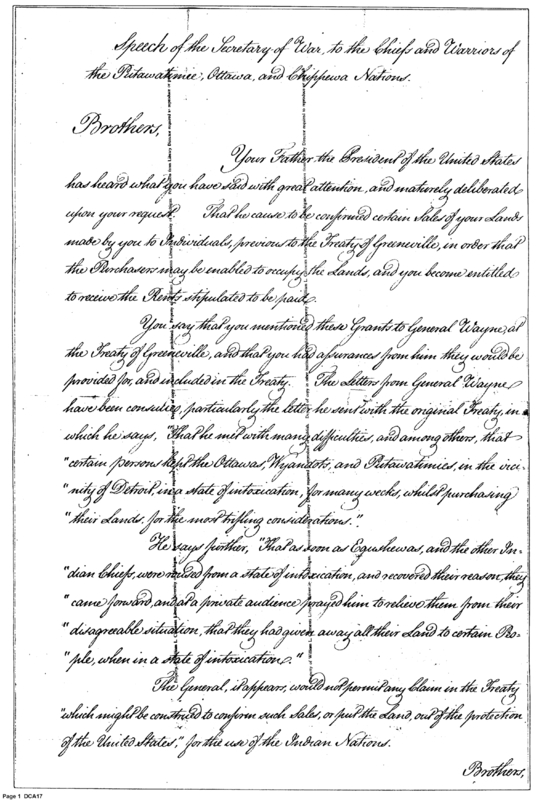 Speech of the Secretary of War, to the Chiefs and Warriors of
the Putawatimie, Ottawa, and Chippewa Nations.
Brothers,
Your Father the President of the United States
has heard what you have said with great attention, and maturely deliberated
upon your request. That he cause to be confirmed certain Sales of your Lands
made by you to Individuals, previous to the Treaty of Greeneville, in order that
the Purchasers may be enabled to occupy the Lands, and you become entitled
to receive the Rents stipulated to be paid.
You say that you mentioned these Grants to General Wayne, at
the Treaty of Greeneville, and that you had assurances from him they would be
provided for, and included in the Treaty. The Letters from General Wayne
have been consulted, particularly the letter he sent with the original Treaty, in
which he says, "That he met with many difficulties, and among others, that
"certain persons kept the Ottawas, Wyandots, and Putawatimies, in the vici-
"nity of Detroit, in a state of intoxication, for many weeks, whilst purchasing
"their Lands, for the most trifling considerations."
He says further, "That as soon as Egushewas, and the other In-
"dian Chiefs, were roused from a state of intoxication, and recovered their reason, they
"came forward, and at a private audience prayed him to relieve them from their
"disagreeable situation, that they had given away all their Land to certain Peo-
"ple, when in a state of intoxication."
The General, it appears, would not permit any Claim in the Treaty
"which might be construed to confirm such Sales, or put the Land, out of the protection
of the United States," for the use of the Indian Nations.
Brothers,
Page 1 DCA17